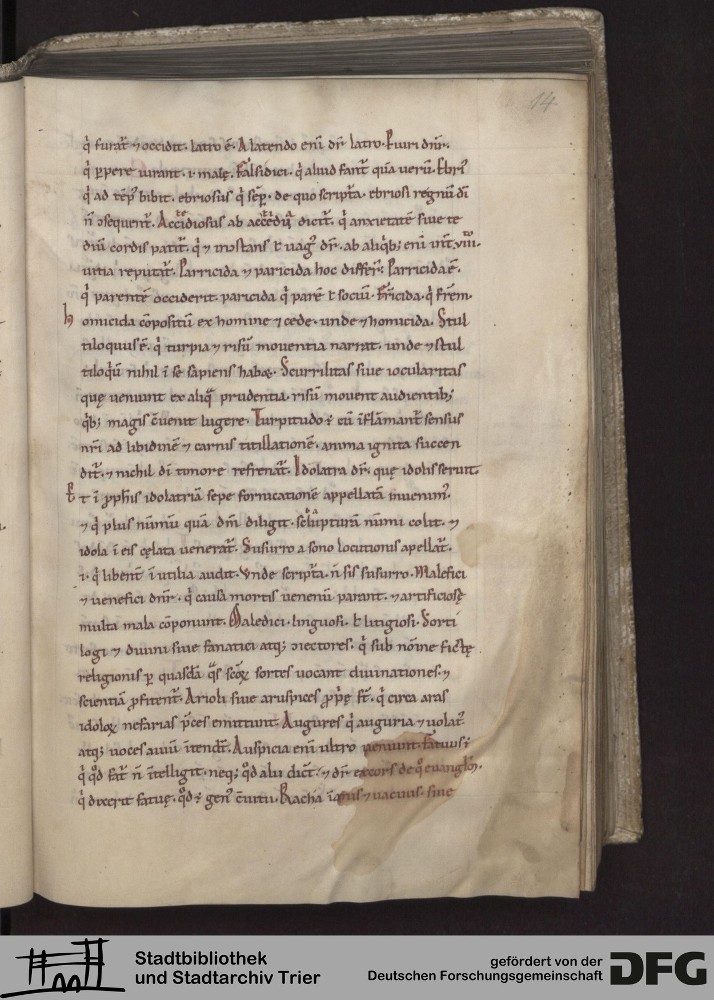 14
q̇ furat᷑ ⁊ occidit. latro ē. A latendo eni᷑ dr̄ latro. Piuri dn̄r.
q̇ ꝑpere iurant. ł malę. Falsidici. q̇ aliud fant᷑ quā uerū. Ebriꝰ
q̇ ad tēpꝰ bibit. ebriosus q̇ sēp̄. de quo scripta. ebriosi regnū dī
n̄ ꝯsequent᷑. Accidiosus ab dictt᷑. q̇ anxietatē siue te
diū cordis patit᷑. q̇ ⁊ inostans ł uagꝰ dr̄. ab aliqb; eni᷑ int̄ viii.
uitia reputat᷑. Parricida ⁊ paricida hoc differt᷑. Parricida ē.
q̇ parentē occiderit. paricida q̇ parē ł sociū. Fr̄icida. q̇ fr̄em.
homicida cōpositū ex homine ⁊ cede. unde ⁊ homicida. Stul
tiloquus ē. q̇ turpia ⁊ risū mouentia narrat. unde ⁊ stul
tiloq̇ū nihil ī se sapiens habaę. Scurrilitas siue iocularitas
quę ueniunt ex aliq̄ prudentia. risū mouent audientib;
q̇b; magis c̄uenit lugere. Turpitudo ē cū īflāmant᷑ sensus
nr̄i ad libidinē ⁊ carnis titillationē. anima ignita succen
dit᷑. ⁊ nichil dī timore refrenat᷑. Idolatra dr̄. quę idolis seruit.
Et ī ꝓphis idolatriā sepe fornicationē appellatā inuenimꝰ.
⁊ q̇ plus nūmū quā dm̄ diligit. sculpturā nūmi colit. ⁊
idola ī eis cęlata uenerat᷑. Susurro a sono locutionis apellat᷑.
ł. q̇ libent᷑ ī utilia audit. Vnde scripta. n̄ sis susurro. Malefici
⁊ uenefici dn̄r. q̇ causa mortis uenenū parant. ⁊ artificiosę
multa mala cōponunt. Maledici. linguosi. ł litigiosi. Sorti
logi ⁊ diuini siue fanatici atq; ꝯiectores. q̇ sub noīne fictę
religionis ꝑ quasdā q̄s scōꝝ sortes uocant diuinationes. ⁊
scientiā ꝓfitent᷑. Arioli siue aruspices ꝓp̄ę st̄. q̇ circa aras
idoloꝝ nefarias p̄ces emittunt. Augures q̇ auguria ⁊ uolatꝰ
atq; uoces auiū ītendt᷑. Auspicia eni᷑ ultro ueniunt. Fatuus ē
q̇ qd̄ fat᷑ n̄ ītelligit. neq; qd̄ alii dict᷑. ⁊ dr̄ excors de qͦ euanglm̄.
q̇ dixerit fatuę. qd̄ ē genꝰ c̄uitii. Racha īanis ⁊ uacuus. siue
Stadtbibliothek
und Stadtarchiv Trier
gefördert von der
Deutschen Forschungsgemeinschaft
DFG